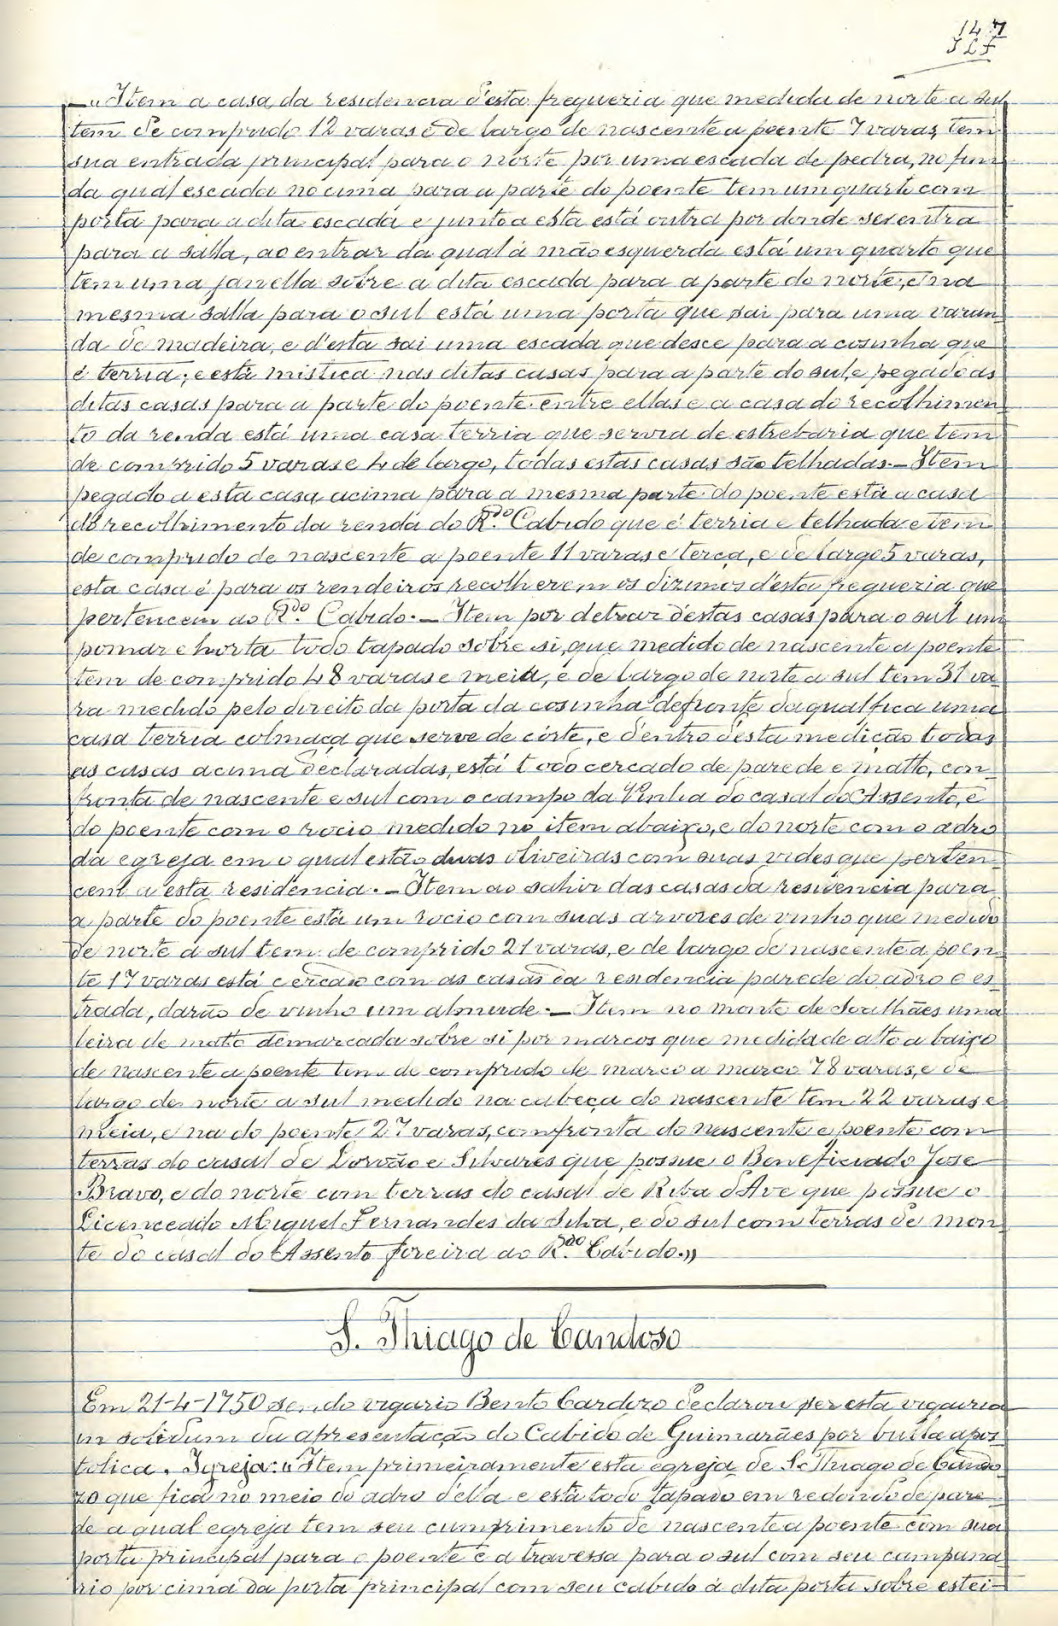 147
— "Item a casa da residencia d'esta fregueria que medida de norte a sul
tem de comprido 12 varas e de largo de nascente a poente 7 varas, tem
sua entrada principal para o norte por uma escada de pedra, no fun-
da qual escada no cima para a parte do poente tem um quarto com
porta para a dita escada e junto a esta está outra por donde se entra
para a salla, ao entrar da qual á mão esquerda está um quarto que
tem uma janella sobre a dita escada para a parte do norte, e na
mesma salla para o sul está uma porta que sai para uma varan-
da de madeira, e d'esta sai uma escada que desce para a cosinha que
é terria; e está mistica nas ditas casas para a parte do sul, e pegado as
ditas casas para a parte do poente entre ellas e a casa do recolhimen-
to da renda está uma casa terria que servia de estrebaria que tem
de comprido 5 varas e 4 de largo, todas estas casas são telhadas. — Item
pegado a esta casa acima para a mesma parte do poente está a casa
do recolhimento da renda do R.do Cabido que é terria e telhada e tem
de comprido de nascente a poente 11 varas e terça, e de largo 5 varas,
esta casa é para os rendeiros recolherem os dizimos d'esta fregueria que
pertencem ao R.do Cabido. — Item por detraz destas casas para o sul um
pomar e horta todo tapado sobre si, que medido de nascente a poente
tem de comprido 48 varas e meia, e de largo de norte a sul tem 31 va-
ra medido pelo direito da porta da cosinha defronte da qual fica uma
casa terria colmaça que serve de côrte, e dentro d'esta medição todas
as casas acima declaradas, está todo cercado de parede e matto, con-
fronta de nascente e sul com o campo da Vinha do casal do Assento, e
do poente com o rocio medido no item abaixo, e do norte com o adro
da egreja em o qual estão duas oliveiras com suas vides que perten-
cem a esta residencia. — Item ao sahir das casas da residencia para
a parte do poente está um rocio com suas arvores de vinho que medido
de norte a sul tem de comprido 21 varas, e de largo de nascente a poen-
te 17 varas está cercado com as casas da residencia parede do adro e es-
trada, darão de vinho um almude. — Item no monte de Soalhães uma
leira de matto demarcada sobre si por marcos que medida de alto a baixo
de nascente a poente tem de comprido de marco a marco 78 varas, e de
largo de norte a sul medido na cabeça do nascente tem 22 varas e
meia, e na do poente 27 varas, confronta do nascente e poente com
terras do casal de Lorvão e Silvares que possue o Beneficiado José
Bravo, e do norte com terras do casal de Riba d'Ave que possue o
Licenceado Miguel Fernandes da Silva, e do sul com terras de mon-
te do casal do Assento foreira ao R.do Cabido."
S. Thiago de Candoso
Em 21-4-1750 sendo vigario Bento Cardozo declarou ser esta vigairia
in solidum da apresentação do Cabido de Guimarães por bulla apos-
tolica. Igreja: "Item primeiramente esta egreja de S. Thiago de Cando-
zo que fica no meio do adro d'ella e está todo tapado em redondo de pare-
de a qual egreja tem seu cumprimento de nascente a poente com sua
porta principal para o poente e a travessa para o sul com seu campana-
rio por cima da porta principal com seu cabido á dita porta sobre estei-